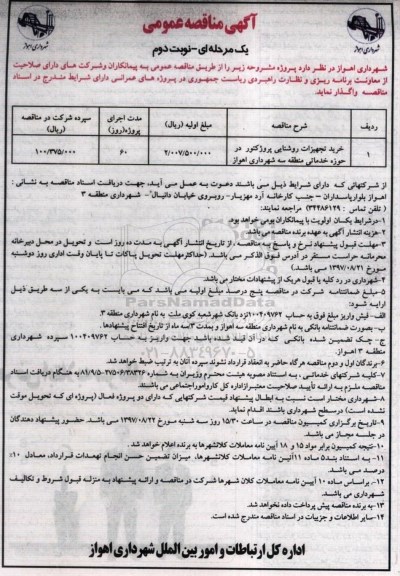 آگهی مناقصه عمومی
یک مرحله ای - نوبت دوم
شهرداری اهواز
شهرداری اهواز در نظر دارد پروژه مشروحه زیر را از طریق مناقصه عمومی به پیمانکاران وشرکت های دارای صلاحیت
از معاونت برنامه ریزی و نظارت راهبردی ریاست جمهوری در پروژه های عمرانی دارای شرایط مندرج در اسناد
مناقصه واگذار نماید.
ردیف | شرح مناقصه | مبلغ اولیه (ریال) | مدت اجرای پروژه(روز) | سپرده شرکت در مناقصه (ریال)
۱ | خرید تجهیزات روشنایی پروژکتور در حوزه خدماتی منطقه سه شهرداری اهواز | ۲/۰۰۷/۵۰۰/۰۰۰ | ۶۰ | ۱۰۰/۳۷۵/۰۰۰
از شرکتهائی که دارای شرایط ذیل می باشند دعوت به عمل می آید، جهت دریافت اسناد مناقصه به نشانی :
اهواز بلوارپاسداران - جنب کارخانه آرد مهزیار- روبروی خیابان دانیال"- شهرداری منطقه ۳
( تلفن تماس : ۳۴۴۸۶۱۲۹) مراجعه نمایند:
۱-درشرایط یکسان اولویت با پیمانکاران بومی خواهد بود.
۲-هزینه انتشار آگهی به عهده برنده مناقصه می‌باشد
۳-مهلت قبول پیشنهاد نرخ و پاسخ به مناقصه ، از تاریخ انتشار آگهی به مدت ده روز است و تحویل در محل دبیرخانه
محرمانه حراست مستقر در آدرس فوق الذکر می باشد. (حداکثرمهلت تحویل پاکات تا پایان وقت اداری روز دوشنبه
مورخ ۱۳۹۷/۰۸/۲۱ می باشد)
۴-شهرداری در رد کلیه یا قبول هریک از پیشنهادات مختار می باشد.
۵-مبلغ ضمانتنامه شرکت در مناقصه پنج درصد مبلغ اولیه می باشد که می بایست به یکی از سه طریق ذیل
ارایه شود:
الف- فیش واریز مبلغ فوق به حساب ۱۰۰۴۰۹۷۶۲نزد بانک شهر شعبه کوی ملت به نام شهرداری منطقه ۳
ب- بصورت ضمانتنامه بانکی به نام شهرداری منطقه سه اهواز و بمدت ۳سه ماه از تاریخ افتتاح پیشنهادها.
ج- چک تضمین شده بانکی که در آن قید شده باشد جهت واریز به حساب ۱۰۰۴۰۹۷۶۲ سپرده شهرداری
منطقه ۳ اهواز.
۶-برندگان اول و دوم مناقصه هرگاه حاضر به انعقاد قرارداد نشوند سپرده آنان به ترتیب ضبط خواهد شد.
۷-کلیه شرکتهای خدماتی ، به استناد مصوبه هیئت محترم وزیران به شماره ۳۸۳۲۶/ت۲۷۵۰۶ه ۸۱/۹/۵ به هنگام دریافت اسناد
مناقصه ملزم به ارائه تأیید صلاحیت معتبرازاداره کل کارواموراجتماعی می باشند.
۸-شهرداری مختار است نسبت به ابطال پیشنهاد قیمت شرکتهایی که دارای دو پروژه فعال (پروژه ای که تحویل موقت
نشده است) درسطح شهرداری باشند اقدام نماید.
۹-تاریخ برگزاری کمیسیون مناقصه در ساعت ۱۵/۳۰ روز سه شنبه مورخ ۱۳۹۷/۰۸/۲۲ می باشد. حضور پیشنهاد دهندگان
در جلسه مجاز می باشد.
۱۰-نتیجه کمیسیون برابر مواد ۱۵ و ۱۸ آیین نامه معاملات کلانشهرها به برنده اعلام خواهد شد.
۱۱- به استناد بند۵ ماده ۱۱آئین نامه معاملات کلانشهرها، میزان تضمین حسن انجام تعهدات قرارداد، معادل ۱۰٪
درصد می باشد.
۱۲-براساس ماده ۱۰ آیین نامه معاملات کلان شهرها شرکت در مناقصه و ارائه پیشنهاد به منزله قبول شروط و تکالیف
شهرداری می باشد.
۱۳-به برنده مناقصه پیش پرداخت داده نخواهد شد.
۱۴-سایر اطلاعات و جزییات در اسناد مناقصه مندرج شده است.
اداره کل ارتباطات و امور بین الملل شهرداری اهواز